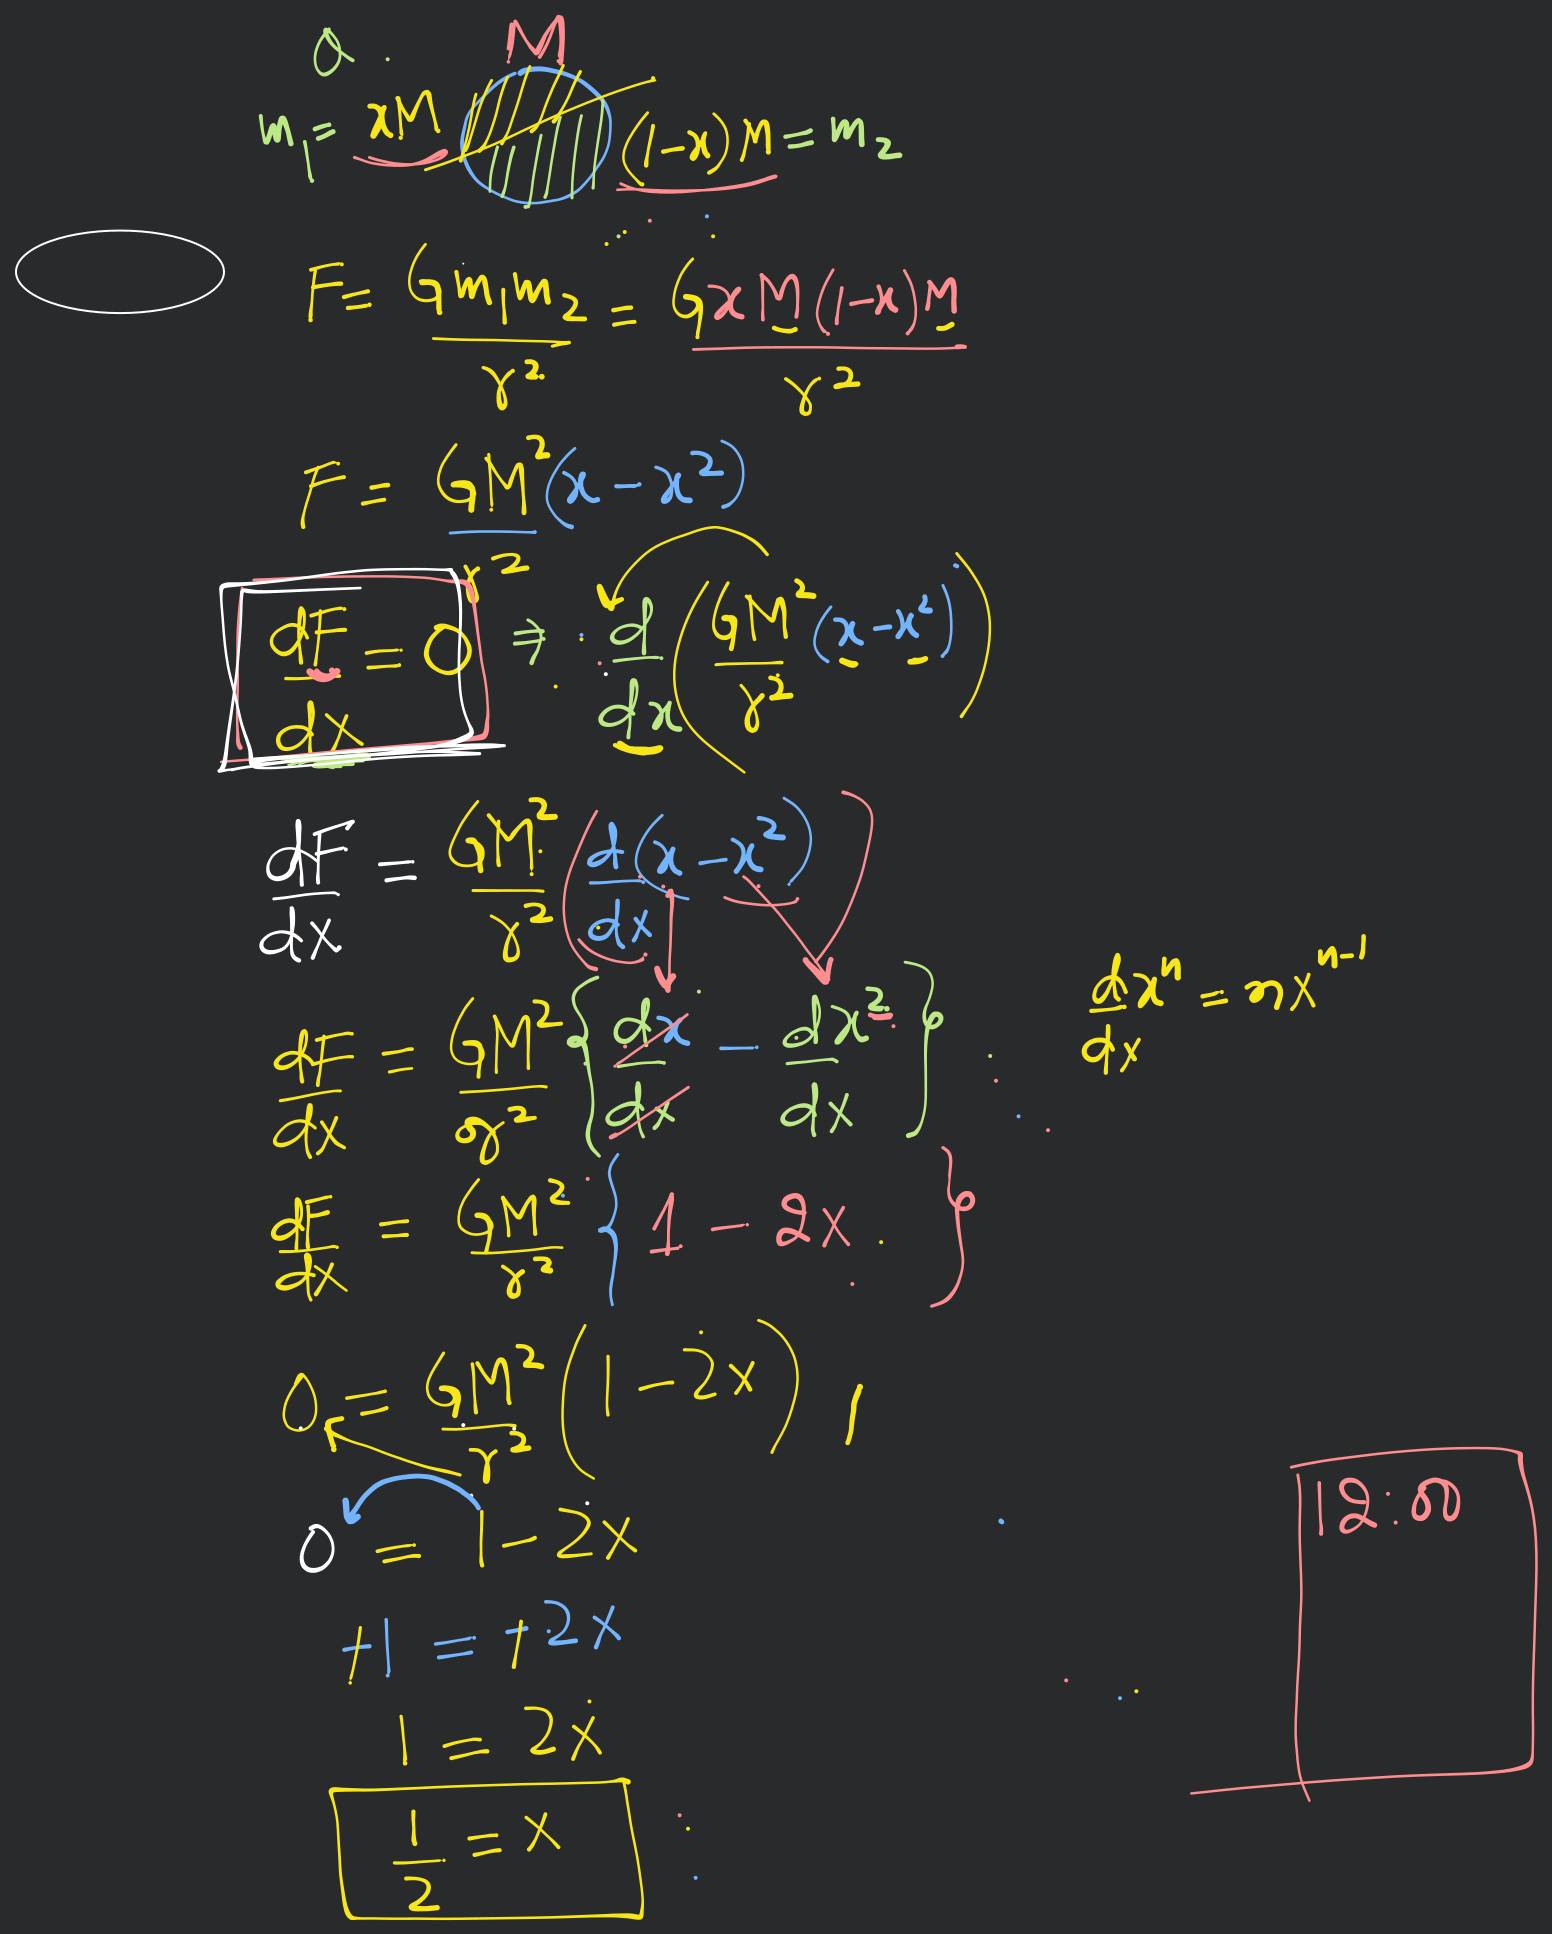 Q. M
m₁ = xM (1-x) M = m₂
F = G m₁ m₂ / r² = G x M (1-x) M / r²
F = GM² (x - x²) / r²
dF/dx = 0 ⇒ d/dx ( GM²/r² (x - x²) )
dF/dx = GM²/r² ( d(x - x²)/dx )
d/dx xⁿ = n xⁿ⁻¹
dF/dx = GM²/r² { dx/dx - dx²/dx }
dF/dx = GM²/r² { 1 - 2x }
0 = GM²/r² ( 1 - 2x )
0 = 1 - 2x
12:00
+1 = +2x
1 = 2x
1/2 = x